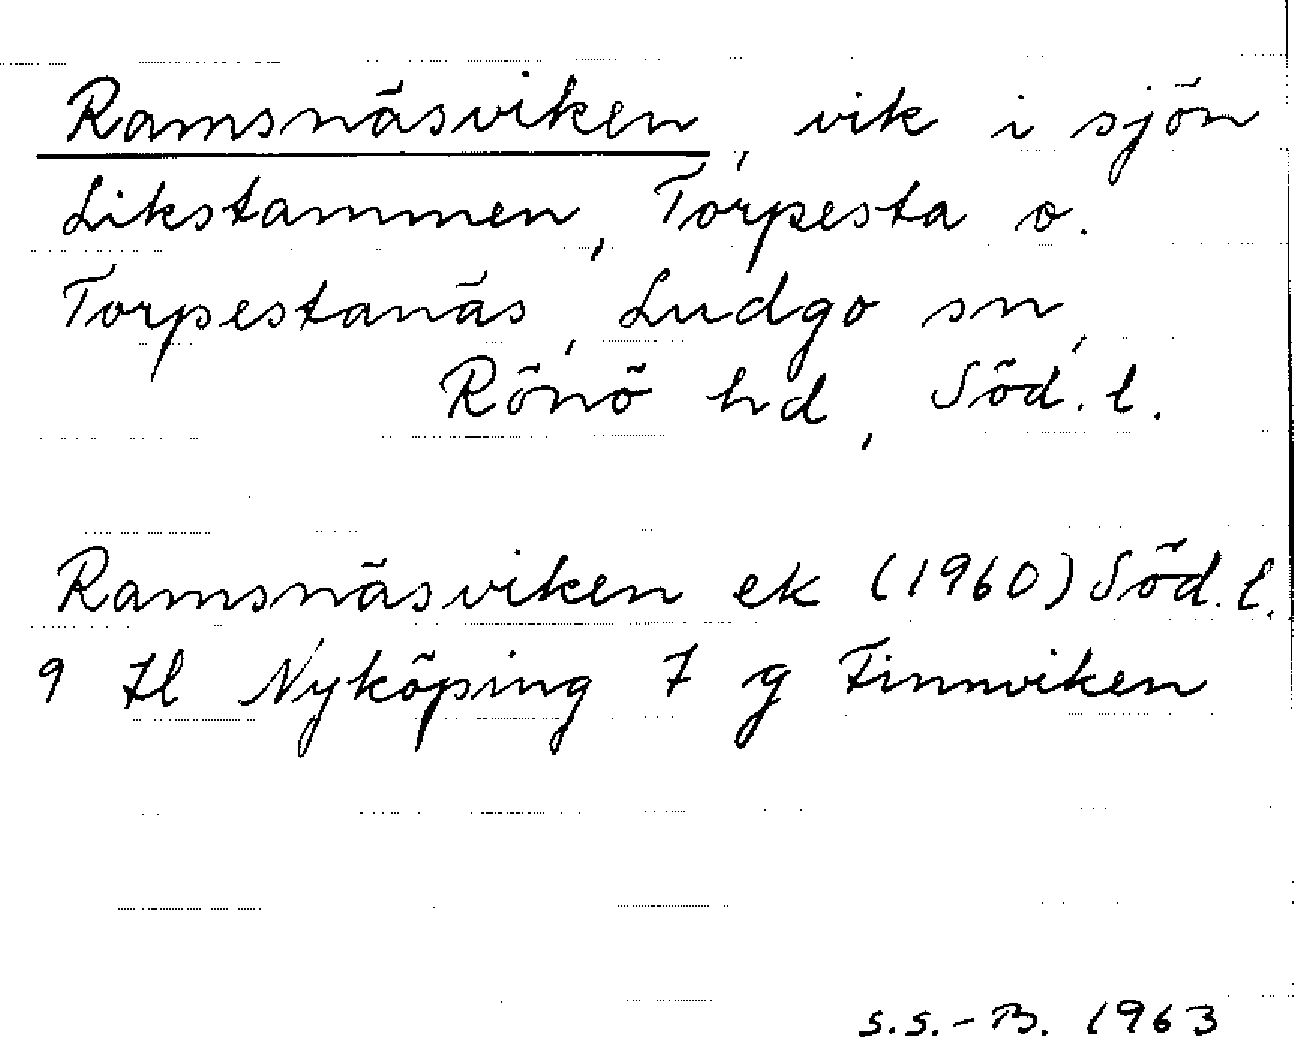 Ramsnäsviken, vik i sjön
Likstammen, Torpesta o.
Torpestanäs, Ludgo sn,
Rönö hd, Söd. l.
Ramsnäsviken ek (1960) Söd. l.
9 Hl Nyköping 7 g Finnviken
S.S.-B. 1963